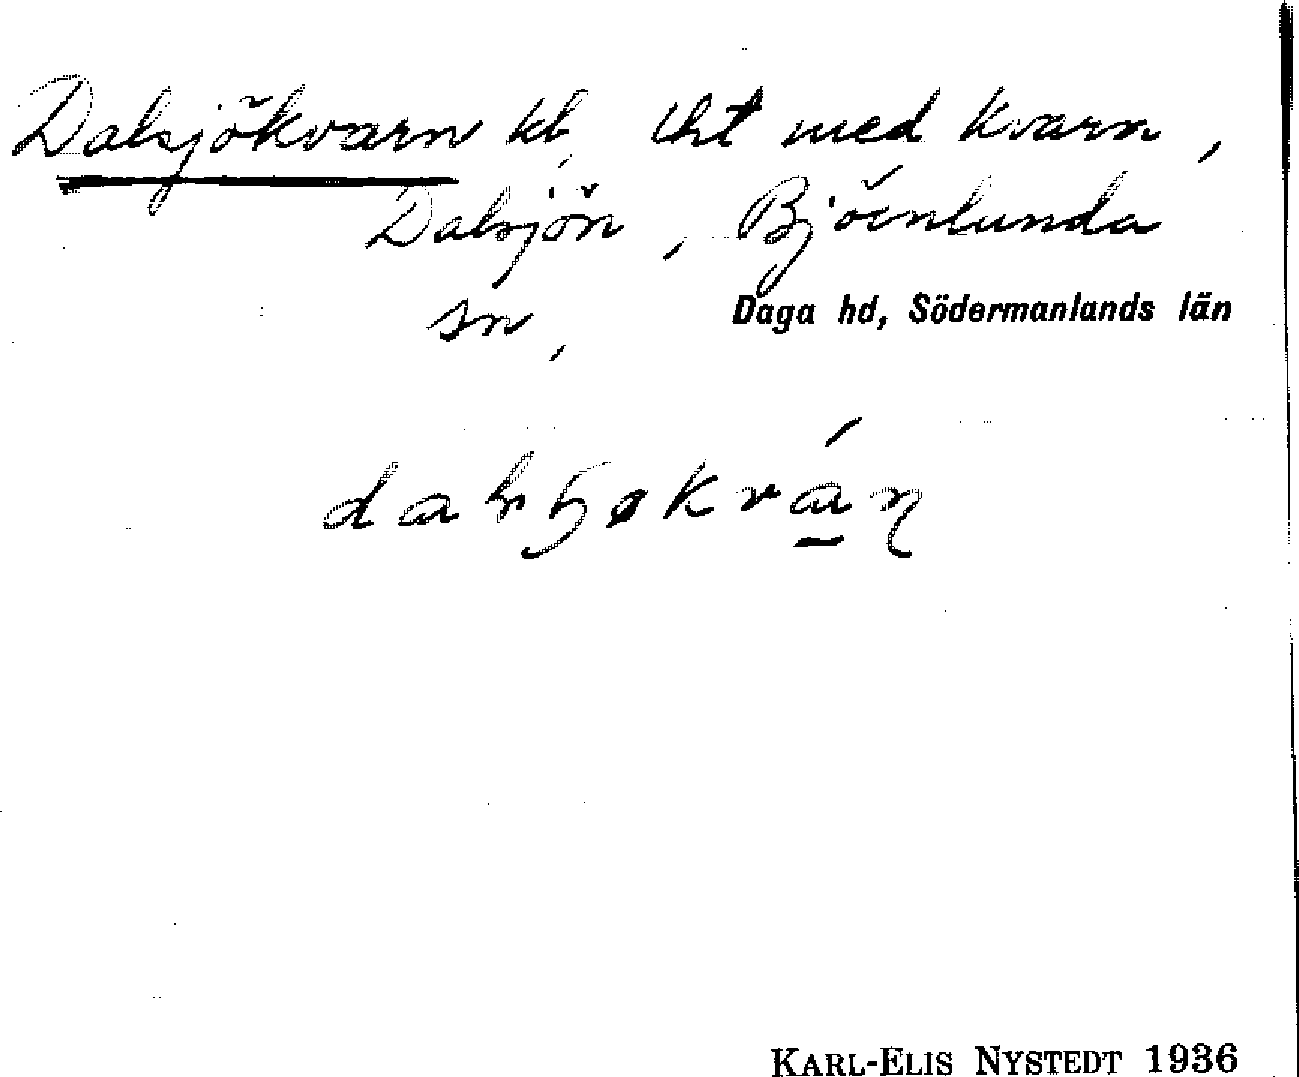 Dalsjökvarn kl, lht med kvarn,
Dalsjön, Björnlunda
sn,
Daga hd, Södermanlands län
KARL-ELIS NYSTEDT 1936